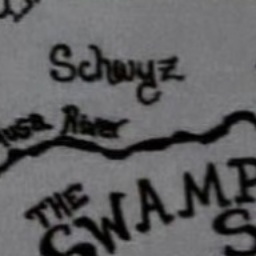 Schwyz
River
THE
SWAMP
S